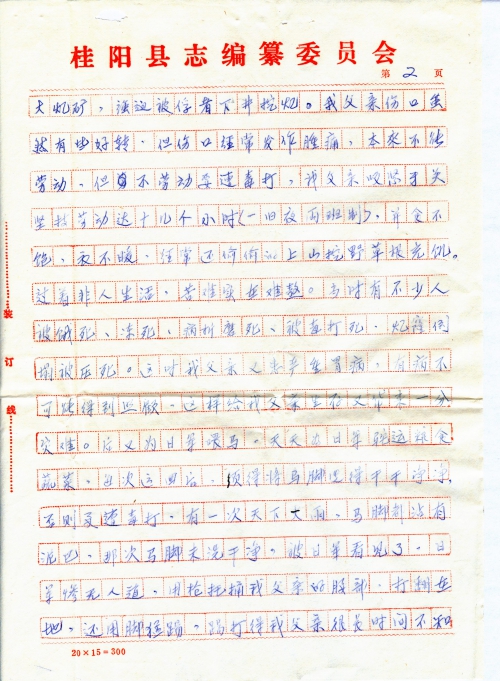 桂阳县志编纂委员会
第2页
大炕矿，强迫被俘者下井挖炕。我父亲伤口虽
然有些好转，但伤口经常发作肿痛，本来不能
劳动，但不劳动要遭毒打，我父亲咬紧牙关
坚持劳动达十几个小时(一日夜两班制)，并食不
饱，衣不暖，经常还偷偷的上山挖野草根充饥。
过着非人生活，苦难实在难整。当时有不少人
被饿死、冻死、病折磨死、被毒打死、炕底倒
塌被压死。这时我父亲又患严重胃病，有病不
可能得到照顾，这样给我父亲生存又带来一分
灾难。后又为日军喂马，天天为日军驮运粮食
蔬菜，每次运回后，须得将马脚洗得干干净净，
否则又遭毒打，有一次天下大雨，马脚都沾有
泥巴，那次马脚未洗干净，被日军看见了，日
军惨无人道，用枪托捅我父亲的股部，打翻在
地，还用脚猛踢，踢打得我父亲很长时间不知
20×15=300
装订线